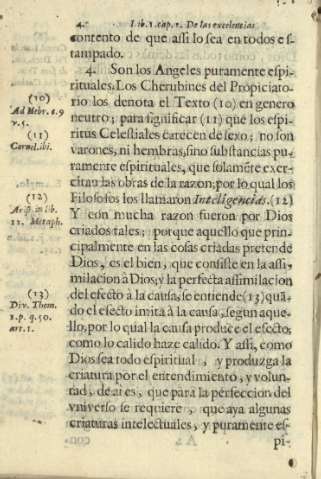 4. Lib. 1. cap. 1. De las excelencias
contento de que assi lo sea en todos e s-
tampado.
4. Son los Angeles puramente espi-
rituales. Los Cherubines del Propiciato-
rio los denota el Texto (10) en genero
neutro; para significar (11) que los espi-
ritus Celestiales carecen de sexo; no son
varones, ni hembras, sino substancias pu-
ramente espirituales, que solamēte exer-
citau las obras de la razon; por lo qual los
Filosofos los llamaron Inteligencias. (12)
Y con mucha razon fueron por Dios
criados tales; porque aquello que prin-
cipalmente en las cosas criadas pretende
Dios, es el bien, que consiste en la assi-
milacion à Dios; y la perfecta assimilacion
del efecto à la causa, se entiende (13) quā-
do el efecto imita à la causa, segun aque-
llo, por lo qual la causa produce el efecto;
como lo calido haze calido. Y assi, como
Dios sea todo espiritual, y produzga la
criatura por el entendimiento, y volun-
tad, de ai es, que para la perfeccion del
vniverso se requiere, que aya algunas
criaturas intelectuales, y puramente es-
pi-
(10)
Ad Hebr. 1. 9
v. 5.
(11)
Cornel. ibi.
(12)
Arist. in lib.
12. Metaph.
(13)
Div. Thom.
1. p. q. 50.
art. 1.